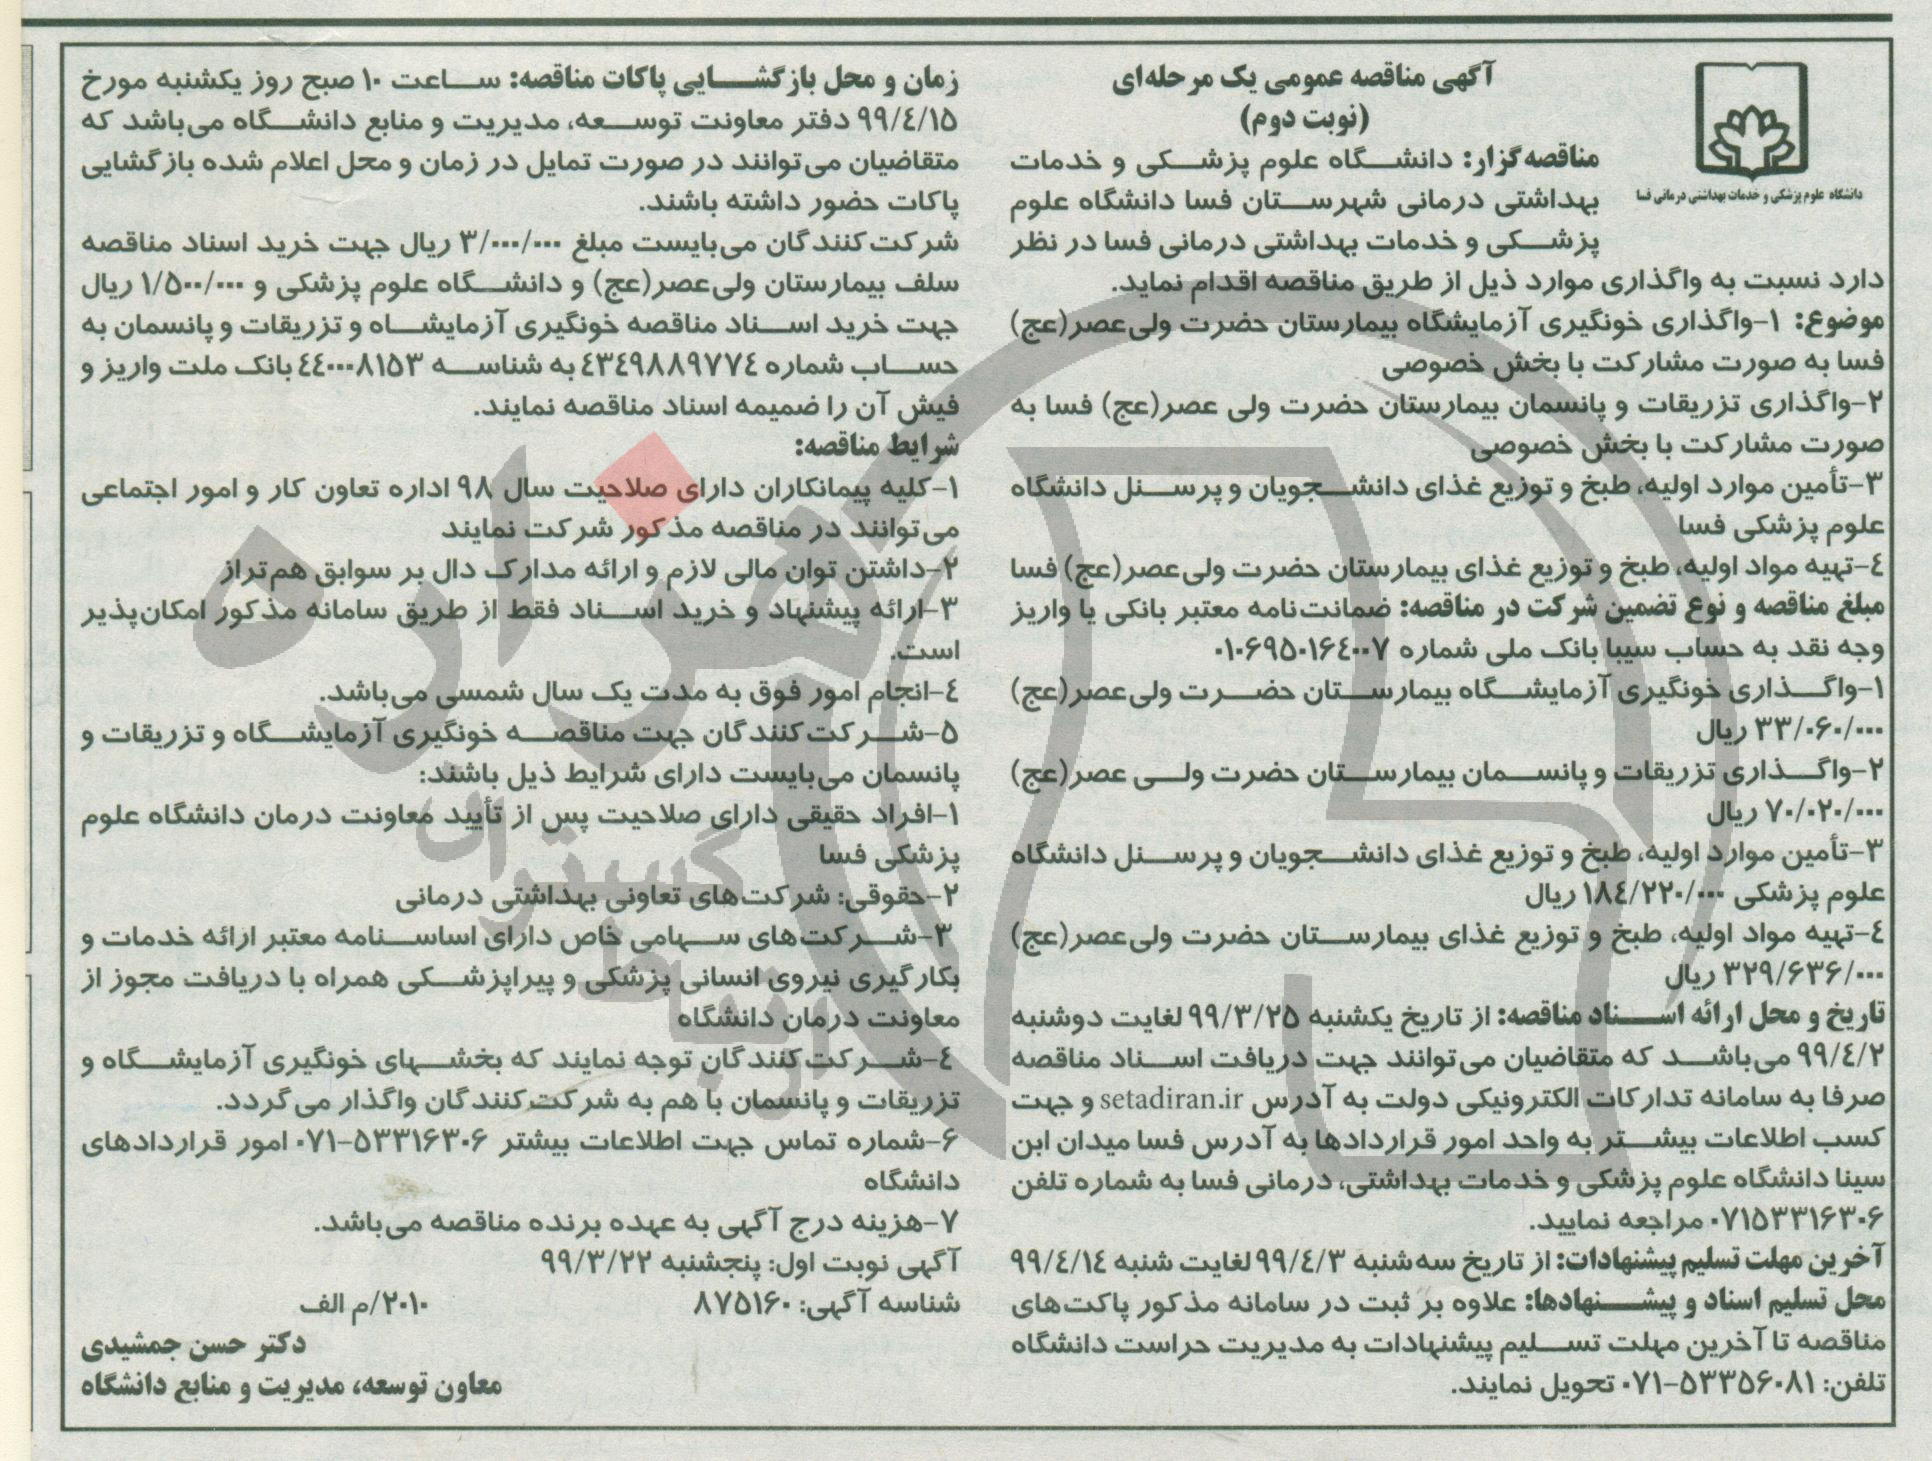 دانشگاه علوم پزشکی و خدمات بهداشتی درمانی فسا
آگهی مناقصه عمومی یک مرحله‌ای
(نوبت دوم)
مناقصه‌گزار: دانشگاه علوم پزشکی و خدمات
بهداشتی درمانی شهرستان فسا دانشگاه علوم
پزشکی و خدمات بهداشتی درمانی فسا در نظر
دارد نسبت به واگذاری موارد ذیل از طریق مناقصه اقدام نماید.
موضوع: ۱-واگذاری خونگیری آزمایشگاه بیمارستان حضرت ولی‌عصر(عج)
فسا به صورت مشارکت با بخش خصوصی
۲-واگذاری تزریقات و پانسمان بیمارستان حضرت ولی عصر(عج) فسا به
صورت مشارکت با بخش خصوصی
۳-تأمین موارد اولیه، طبخ و توزیع غذای دانشجویان و پرسنل دانشگاه
علوم پزشکی فسا
۴-تهیه مواد اولیه، طبخ و توزیع غذای بیمارستان حضرت ولی‌عصر(عج) فسا
مبلغ مناقصه و نوع تضمین شرکت در مناقصه: ضمانت‌نامه معتبر بانکی یا واریز
وجه نقد به حساب سیبا بانک ملی شماره ۰۱۰۶۹۵۰۱۶۴۰۰۷
۱-واگذاری خونگیری آزمایشگاه بیمارستان حضرت ولی‌عصر(عج)
۳۳/۰۶۰/۰۰۰ ریال
۲-واگذاری تزریقات و پانسمان بیمارستان حضرت ولی عصر(عج)
۷۰/۰۲۰/۰۰۰ ریال
۳-تأمین موارد اولیه، طبخ و توزیع غذای دانشجویان و پرسنل دانشگاه
علوم پزشکی ۱۸۴/۲۲۰/۰۰۰ ریال
۴-تهیه مواد اولیه، طبخ و توزیع غذای بیمارستان حضرت ولی‌عصر(عج)
۳۲۹/۶۳۶/۰۰۰ ریال
تاریخ و محل ارائه اسناد مناقصه: از تاریخ یکشنبه ۹۹/۳/۲۵ لغایت دوشنبه
۹۹/۴/۲ می‌باشد که متقاضیان می‌توانند جهت دریافت اسناد مناقصه
صرفا به سامانه تدارکات الکترونیکی دولت به آدرس setadiran.ir و جهت
کسب اطلاعات بیشتر به واحد امور قراردادها به آدرس فسا میدان ابن
سینا دانشگاه علوم پزشکی و خدمات بهداشتی، درمانی فسا به شماره تلفن
۰۷۱۵۳۳۱۶۳۰۶ مراجعه نمایید.
آخرین مهلت تسلیم پیشنهادات: از تاریخ سه‌شنبه ۹۹/۴/۳ لغایت شنبه ۹۹/۴/۱۴
محل تسلیم اسناد و پیشنهادها: علاوه بر ثبت در سامانه مذکور پاکت‌های
مناقصه تا آخرین مهلت تسلیم پیشنهادات به مدیریت حراست دانشگاه
تلفن: ۵۳۳۵۶۰۸۱-۰۷۱ تحویل نمایند.
زمان و محل بازگشایی پاکات مناقصه: ساعت ۱۰ صبح روز یکشنبه مورخ
۹۹/۴/۱۵ دفتر معاونت توسعه، مدیریت و منابع دانشگاه می‌باشد که
متقاضیان می‌توانند در صورت تمایل در زمان و محل اعلام شده بازگشایی
پاکات حضور داشته باشند.
شرکت‌کنندگان می‌بایست مبلغ ۳/۰۰۰/۰۰۰ ریال جهت خرید اسناد مناقصه
سلف بیمارستان ولی‌عصر(عج) و دانشگاه علوم پزشکی و ۱/۵۰۰/۰۰۰ ریال
جهت خرید اسناد مناقصه خونگیری آزمایشاه و تزریقات و پانسمان به
حساب شماره ۴۳۴۹۸۸۹۷۷۴ به شناسه ۴۴۰۰۰۸۱۵۳ بانک ملت واریز و
فیش آن را ضمیمه اسناد مناقصه نمایند.
شرایط مناقصه:
۱-کلیه پیمانکاران دارای صلاحیت سال ۹۸ اداره تعاون کار و امور اجتماعی
می‌توانند در مناقصه مذکور شرکت نمایند
۲-داشتن توان مالی لازم و ارائه مدارک دال بر سوابق هم‌تراز
۳-ارائه پیشنهاد و خرید اسناد فقط از طریق سامانه مذکور امکان‌پذیر
است.
۴-انجام امور فوق به مدت یک سال شمسی می‌باشد.
۵-شرکت‌کنندگان جهت مناقصه خونگیری آزمایشگاه و تزریقات و
پانسمان می‌بایست دارای شرایط ذیل باشند:
۱-افراد حقیقی دارای صلاحیت پس از تأیید معاونت درمان دانشگاه علوم
پزشکی فسا
۲-حقوقی: شرکت‌های تعاونی بهداشتی درمانی
۳-شرکت‌های سهامی خاص دارای اساسنامه معتبر ارائه خدمات و
بکارگیری نیروی انسانی پزشکی و پیراپزشکی همراه با دریافت مجوز از
معاونت درمان دانشگاه
۴-شرکت‌کنندگان توجه نمایند که بخشهای خونگیری آزمایشگاه و
تزریقات و پانسمان با هم به شرکت‌کنندگان واگذار می‌گردد.
۶-شماره تماس جهت اطلاعات بیشتر ۵۳۳۱۶۳۰۶-۰۷۱ امور قراردادهای
دانشگاه
۷-هزینه درج آگهی به عهده برنده مناقصه می‌باشد.
آگهی نوبت اول: پنجشنبه ۹۹/۳/۲۲
شناسه آگهی: ۸۷۵۱۶۰ ۲۰۱۰/م الف
دکتر حسن جمشیدی
معاون توسعه، مدیریت و منابع دانشگاه
هزاره
ارتباط گستران